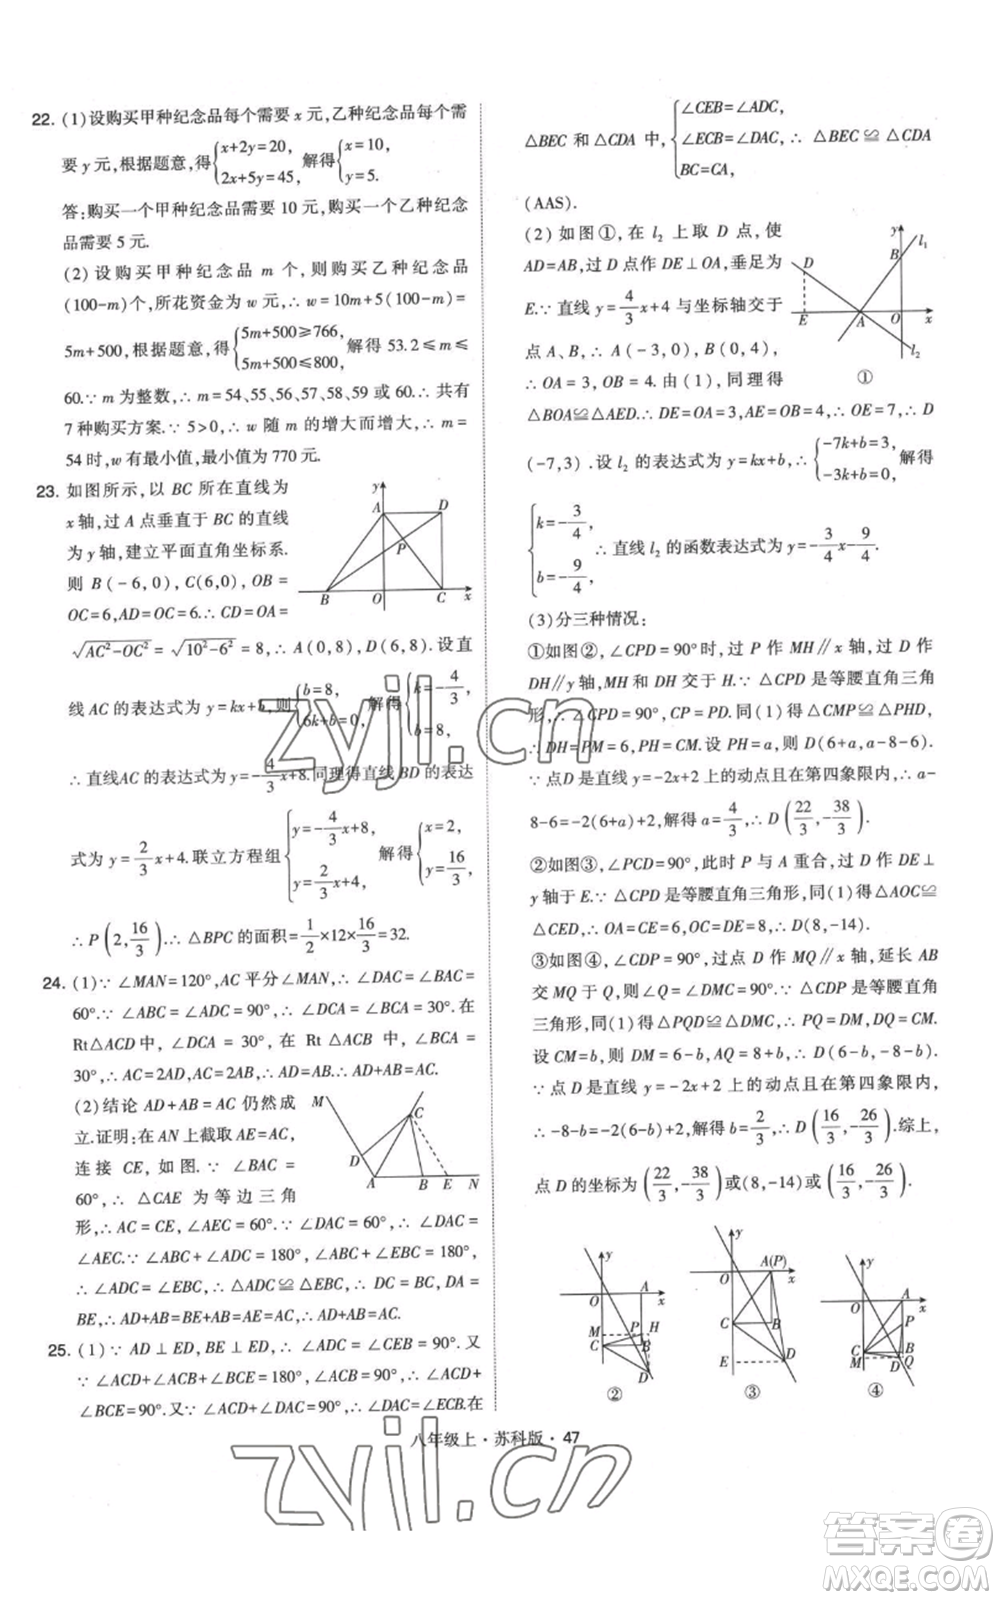 22. (1)设购买甲种纪念品每个需要 x 元,乙种纪念品每个需
要 y 元,根据题意,得{x+2y=20, 2x+5y=45, 解得{x=10, y=5.
答:购买一个甲种纪念品需要 10 元,购买一个乙种纪念
品需要 5 元.
(2)设购买甲种纪念品 m 个,则购买乙种纪念品
(100-m)个,所花资金为 w 元,∴ w = 10m+5(100-m)=
5m+500,根据题意,得{5m+500≥766, 5m+500≤800, 解得 53.2≤m≤
60.∵ m 为整数,∴ m=54、55、56、57、58、59、60.∴ 共有
7 种购买方案.∵ 5>0,∴ w 随 m 的增大而增大,∴ m =
54 时,w 有最小值,最小值为 770 元.
23. 如图所示,以 BC 所在直线为
x 轴,过 A 点垂直于 BC 的直线
为 y 轴,建立平面直角坐标系.
则 B(-6,0),C(6,0),OB =
OC=6,AD=OC=6.∴ CD=OA=
√(AC²-OC²) = √(10²-6²) = 8,∴ A(0,8),D(6,8).设直
线 AC 的表达式为 y=kx+b,则{b=8, 6k+b=0, 解得{k=-4/3, b=8,
∴ 直线AC 的表达式为 y=-4/3x+8.同理得直线 BD 的表达
式为 y=2/3x+4.联立方程组{y=-4/3x+8, y=2/3x+4, 解得{x=2, y=16/3,
∴ P(2,16/3).∴ △BPC 的面积=1/2×12×16/3=32.
24. (1)∵ ∠MAN=120°,AC 平分∠MAN,∴ ∠DAC=∠BAC=
60°.∵ ∠ABC=∠ADC=90°,∴ ∠DCA=∠BCA=30°.在
Rt△ACD中,∠DCA = 30°,在 Rt △ABC 中,∠BCA =
30°,∴ AC=2AD,AC=2AB,∴ AD+AB=AC.
(2)结论 AD+AB=AC 仍然成
立.证明:在 AN 上截取 AE=AC,
连接 CE,如图.∵ ∠BAC =
60°,∴ △CAE 为等边三角
形,∴ AC=CE,∠AEC=60°.∵ ∠DAC=60°,∴ ∠DAC=
∠AEC.∵ ∠ABC+∠ADC=180°,∠ABC+∠EBC=180°,
∴ ∠ADC=∠EBC,∴ △ADC≌△EBC,∴ DC=BC,DA=
BE,∴ AD+AB=AB+BE=AE=AC,∴ AD+AB=AC.
25. (1)∵ AD⊥ED,BE⊥ED,∴ ∠ADC=∠CEB=90°.又
∵ ∠ACD+∠ACB+∠BCE=180°,∠ACB=90°,∴ ∠ACD+
∠BCE=90°.又∵ ∠ACD+∠DAC=90°,∴ ∠DAC=∠ECB.在
△BEC 和 △CDA 中,{∠CEB=∠ADC, ∠ECB=∠DAC, BC=CA, ∴ △BEC≌△CDA
(AAS).
(2)如图①,在 l₂ 上取 D 点,使
AD=AB,过 D 点作 DE⊥OA,垂足为
E.∵ 直线 y=4/3x+4 与坐标轴交于
点 A、B,∴ A(-3,0),B(0,4),
∴ OA=3,OB=4.由(1),同理得
△BOA≌△AED.∴ DE=OA=3,AE=OB=4,∴ OE=7,∴ D
(-7,3).设 l₂ 的表达式为 y=kx+b,∴{-7k+b=3, -3k+b=0, 解得
{k=-3/4, b=-9/4, ∴ 直线 l₂ 的函数表达式为 y=-3/4x-9/4.
(3)分三种情况:
①如图②,∠CPD=90°时,过 P 作 MH∥x 轴,过 D 作
DH∥y 轴,MH 和 DH 交于 H.∵ △CPD 是等腰直角三角
形,∴ ∠CPD=90°,CP=PD.同(1)得△CMP≌△PHD,
∴ DH=PM=6,PH=CM.设 PH=a,则 D(6+a,a-8-6).
∵ 点D 是直线 y=-2x+2 上的动点且在第四象限内,∴ a-
8-6=-2(6+a)+2,解得 a=4/3,∴ D(22/3,-38/3).
②如图③,∠PCD=90°,此时 P 与 A 重合,过 D 作 DE⊥
y 轴于 E.∵ △CPD 是等腰直角三角形,同(1)得△AOC≌
△CED,∴ OA=CE=6,OC=DE=8,∴ D(8,-14).
③如图④,∠CDP=90°,过点 D 作 MQ∥x 轴,延长 AB
交 MQ 于 Q,则∠Q=∠DMC=90°.∵ △CDP 是等腰直角
三角形,同(1)得△PQD≌△DMC,∴ PQ=DM,DQ=CM.
设 CM=b,则 DM=6-b,AQ=8+b,∴ D(6-b,-8-b).
∵ 点D 是直线 y=-2x+2 上的动点且在第四象限内,
∴ -8-b=-2(6-b)+2,解得 b=2/3,∴ D(16/3,-26/3).综上,
点 D 的坐标为(22/3,-38/3)或(8,-14)或(16/3,-26/3).
八年级上·苏科版·47
zyjl.cn
zyjl.cn
答案圈
MXQE.COM